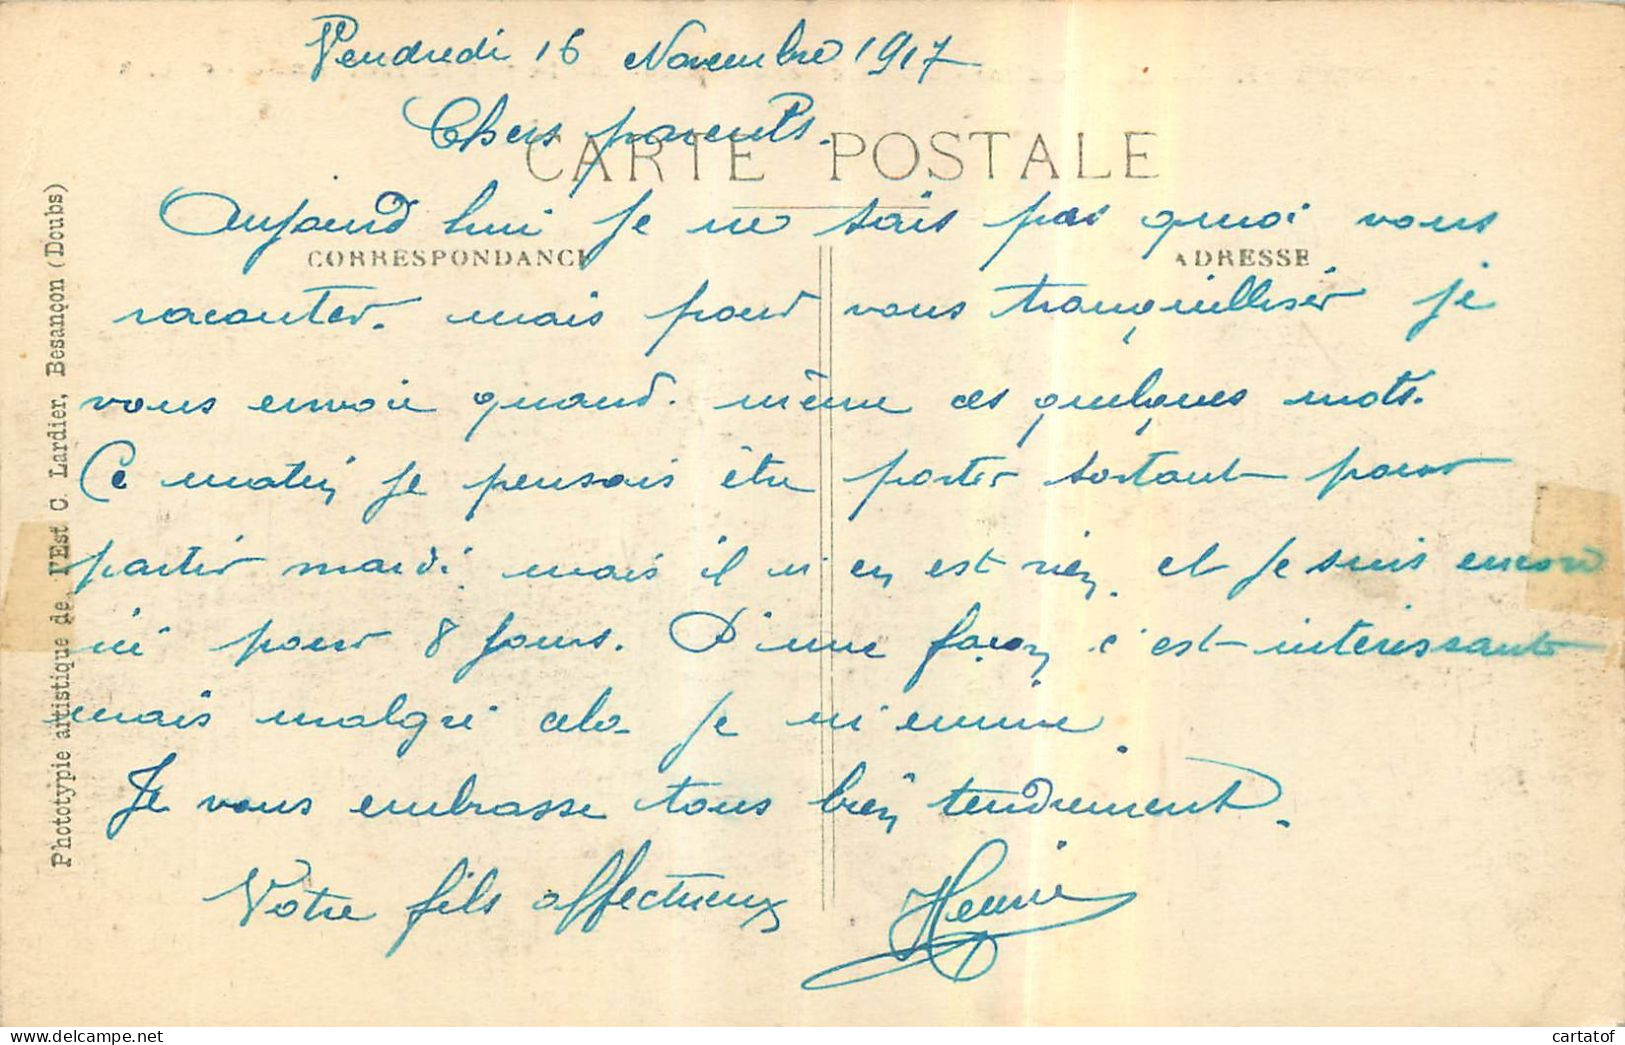 Vendredi 16 Novembre 1917
Chers parents.
CARTE POSTALE
Aujourd hui je ne sais pas quoi vous
CORRESPONDANCE
ADRESSE
raconter. mais pour vous tranquilliser je
vous envoie quand. même ces quelques mots.
Ce matin je pensais être porter sortant pour
partir mardi mais il n'en est rien, et je suis encore
ici pour 8 jours. D'une façon c'est intéressante
mais malgré cela je m'ennuie.
Je vous embrasse tous bien tendrement.
Votre fils affectueux Henri
Phototypie artistique de l'Est C. Lardier, Besançon (Doubs)
cartatof